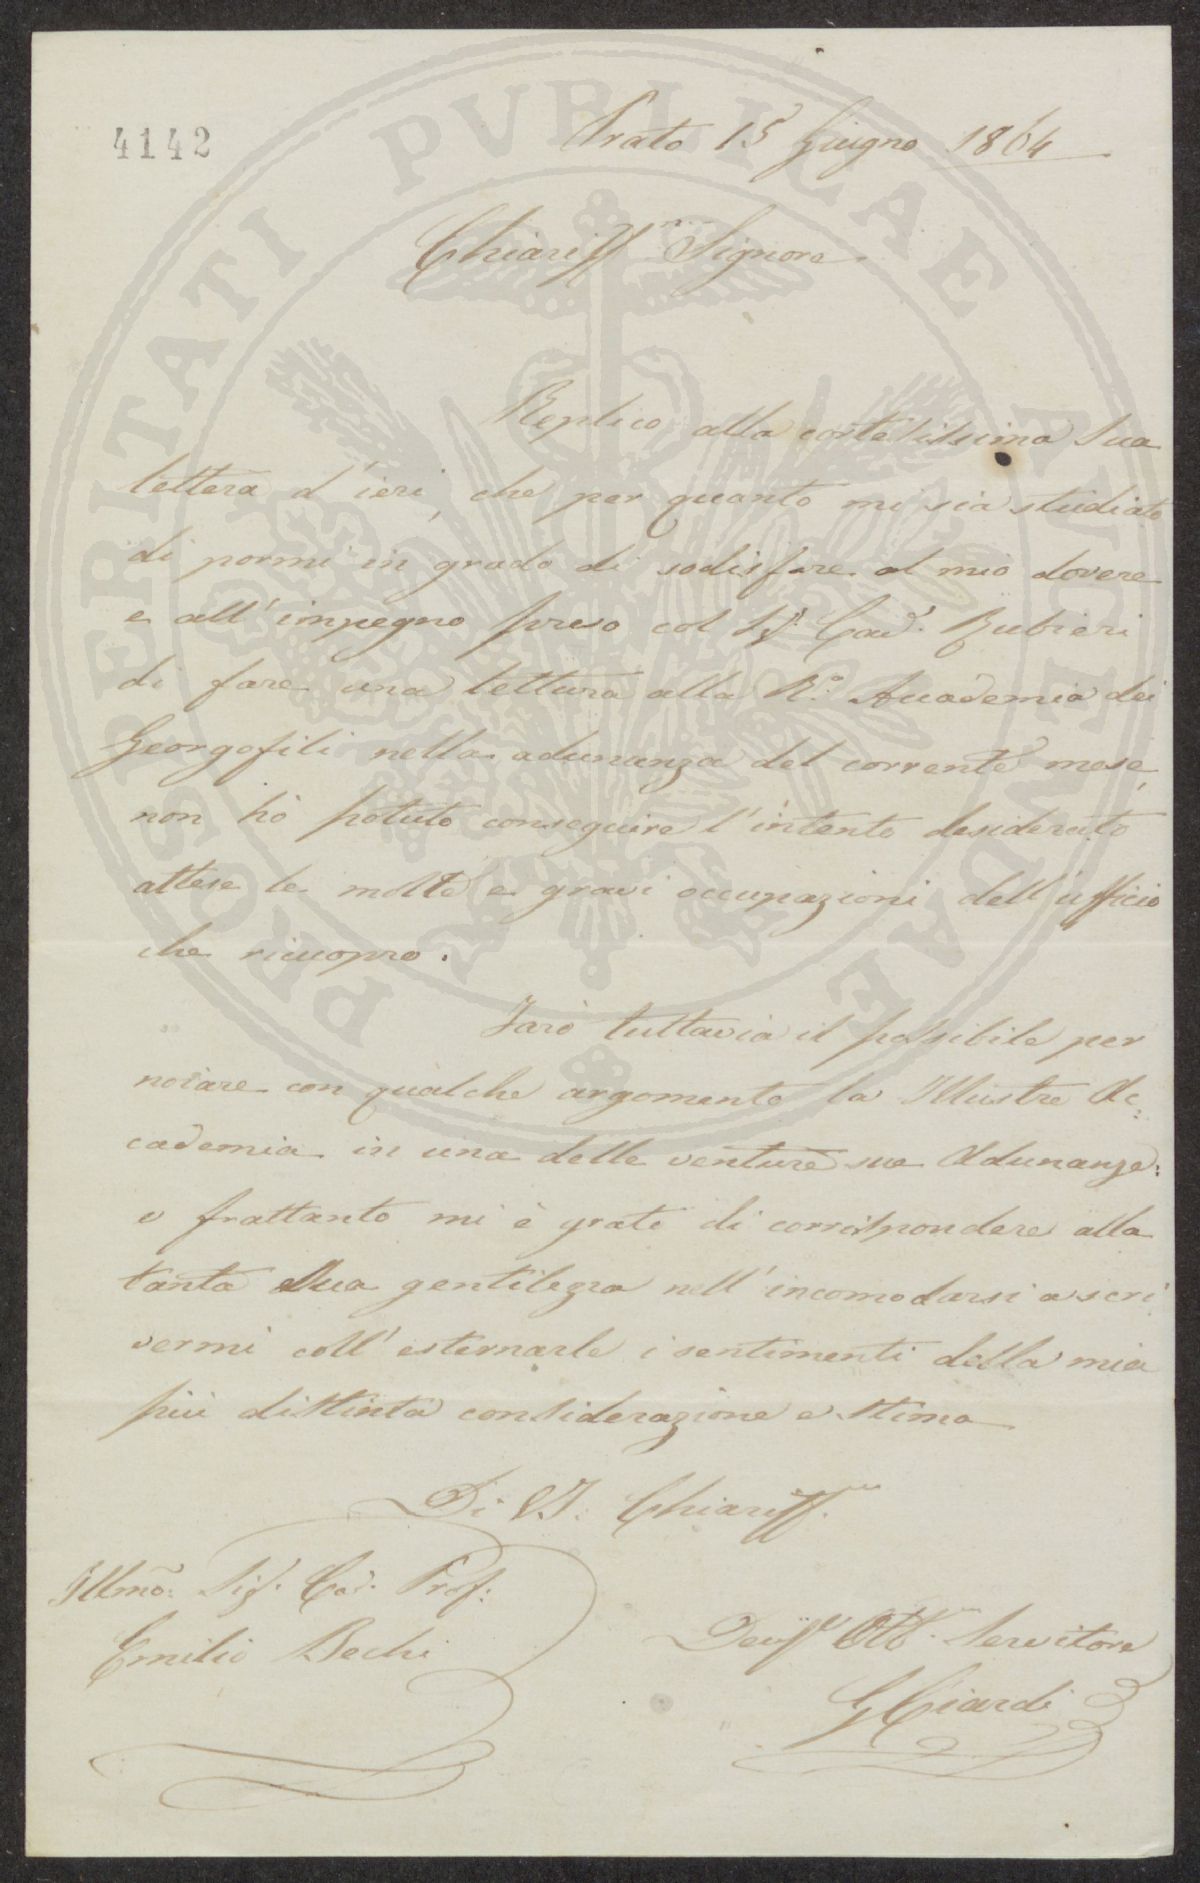 4142
Prato 15 Giugno 1864
Chiariss.mo Signore
Replico alla cortesissima Sua
lettera d'ieri, che per quanto mi sia studiato
di pormi in grado di sodisfare al mio dovere
e all'impegno preso col Sig. Cav. Rubieri
di fare una lettura alla R. Accademia dei
Georgofili nella adunanza del corrente mese,
non hò potuto conseguire l'intento desiderato
attese le molte e gravi occupazioni dell'ufficio
che ricuopro.
Farò tuttavia il possibile per
noiare con qualche argomento la Illustre Ac:
cademia in una delle venture sue Adunanze:
e frattanto mi è grato di corrispondere alla
tanta Sua gentilezza nell'incomodarsi a scri
vermi coll'esternarle i sentimenti della mia
più distinta considerazione e stima
Di V.S. Chiariss.ma
Illmo: Sig. Cav. Prof:
Emilio Bechi
Devss. Obb. Servitore
G Ciardi
PROSPERITATI PVBLICAE AVGENDAE